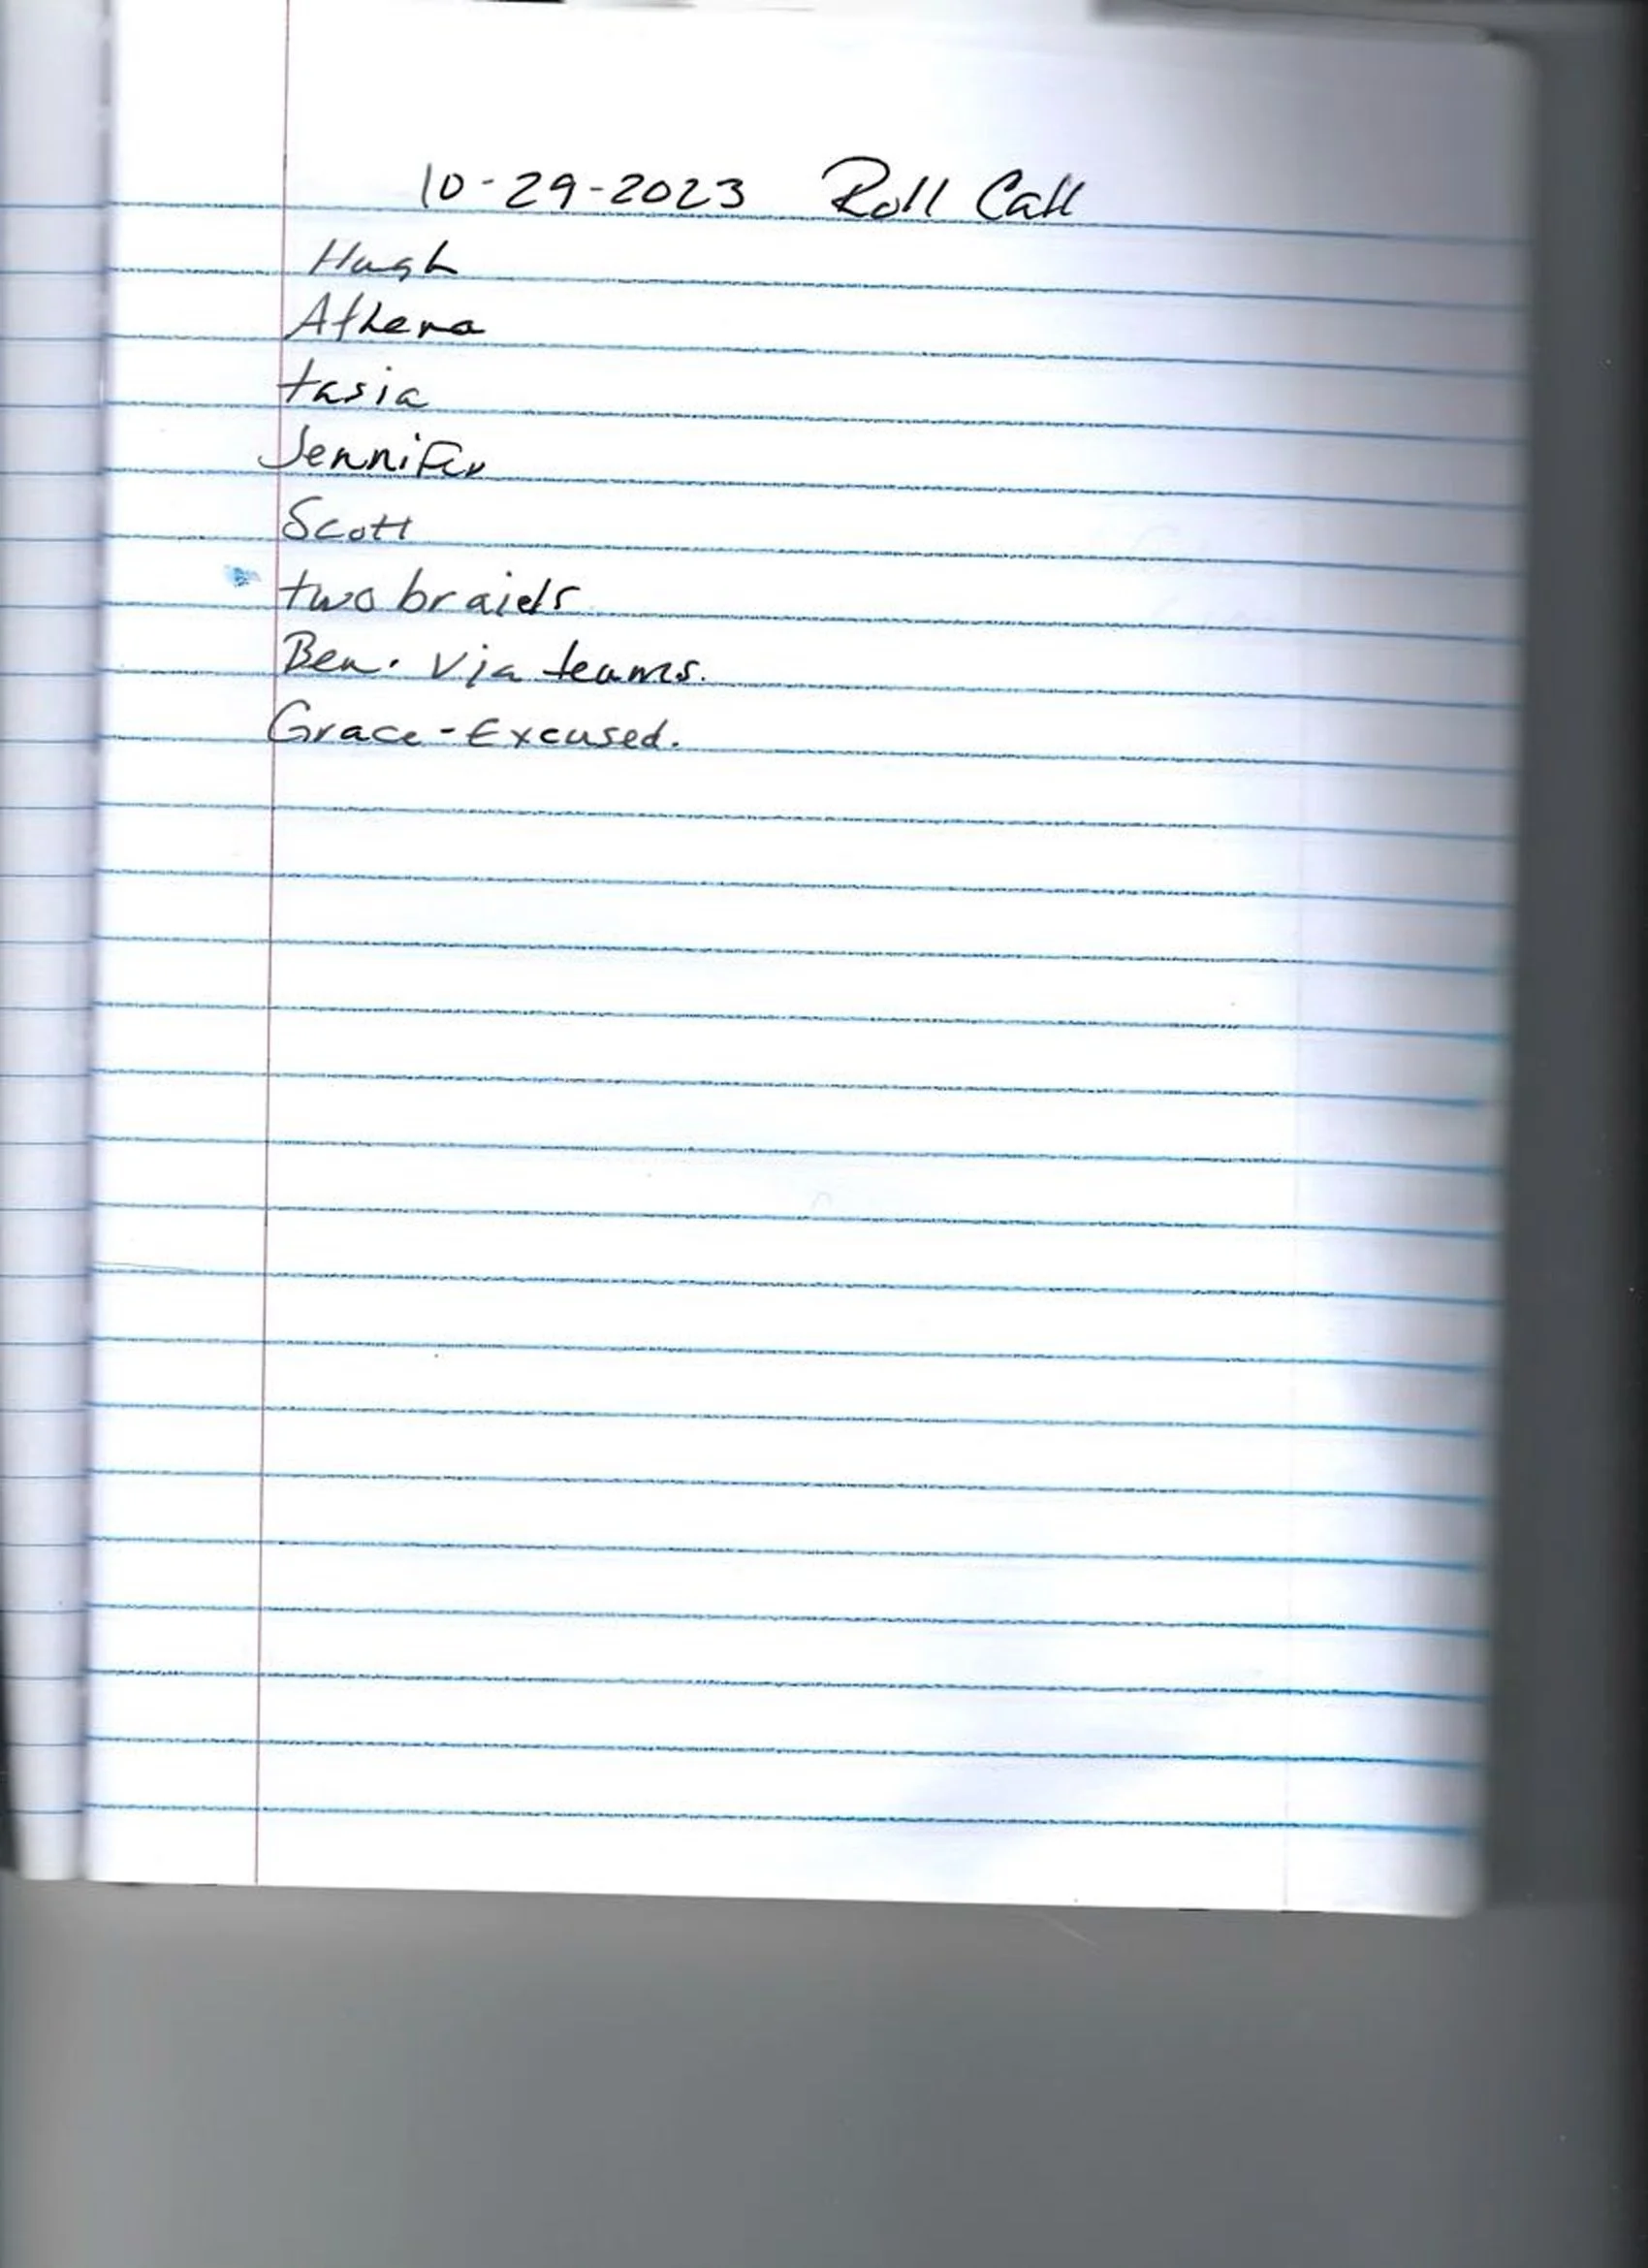 10-29-2023 Roll Call
Hugh
Athena
tasia
Jennifer
Scott
two braids
Ben. Via teams.
Grace-Excused.